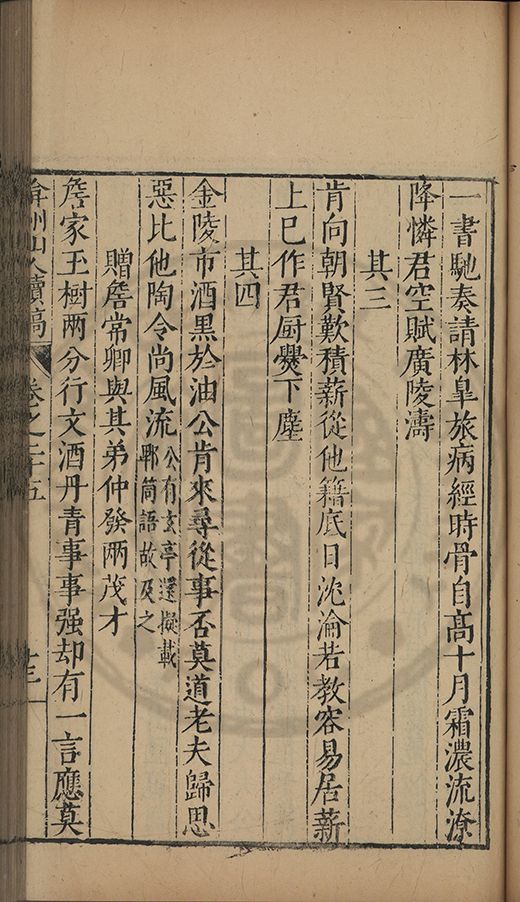 一書馳奏請林臯旅病經時骨自高十月霜濃流潦
降憐君空賦廣陵濤
其三
肯向朝賢歎積薪從他籍底日沈淪若教容易居薪
上巳作君厨爨下塵
其四
金陵市酒黑於油公肯來尋從事否莫道老夫歸思
惡比他陶令尚風流公有玄亭還擬載
郫筒語故及之
贈詹常卿與其弟仲發兩茂才
詹家玉樹兩分行文酒丹青事事强却有一言應莫
弇州山人續稿 卷之二十五